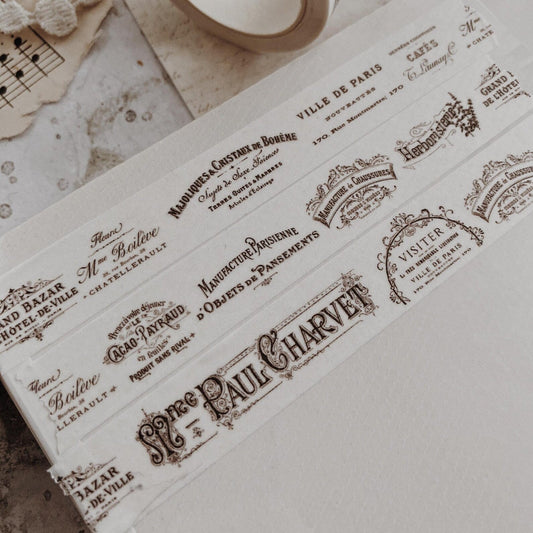 Mme
& CHATE
GRAND
DE L'HÔTEL
CAFÉS
VILLE DE PARIS
NOUVEAUTÉS
170. Rue Montmartre, 170
MAJOLIQUES & CRISTAUX DE BOHÊME
Sujets de Saxe, Services
TERRES CUITES & MARBRES
Articles d'Eclairage
Fleurs
Mme Boilève
CHATELLERAULT
GRAND BAZAR
L'HÔTEL-DE-VILLE
Herboristerie
MANUFACTURE DE CHAUSSURES
MANUFACTURE PARISIENNE
D'OBJETS DE PANSEMENTS
LE
CACAO-PAYRAUD
en feuilles
PRODUIT SANS RIVAL
Fleurs
Boilève
LLERAULT
MANUFACTURE DE CHAUSSURES
VISITER
VILLE DE PARIS
Mme PAUL CHARVET
BAZAR
L-DE-VILLE